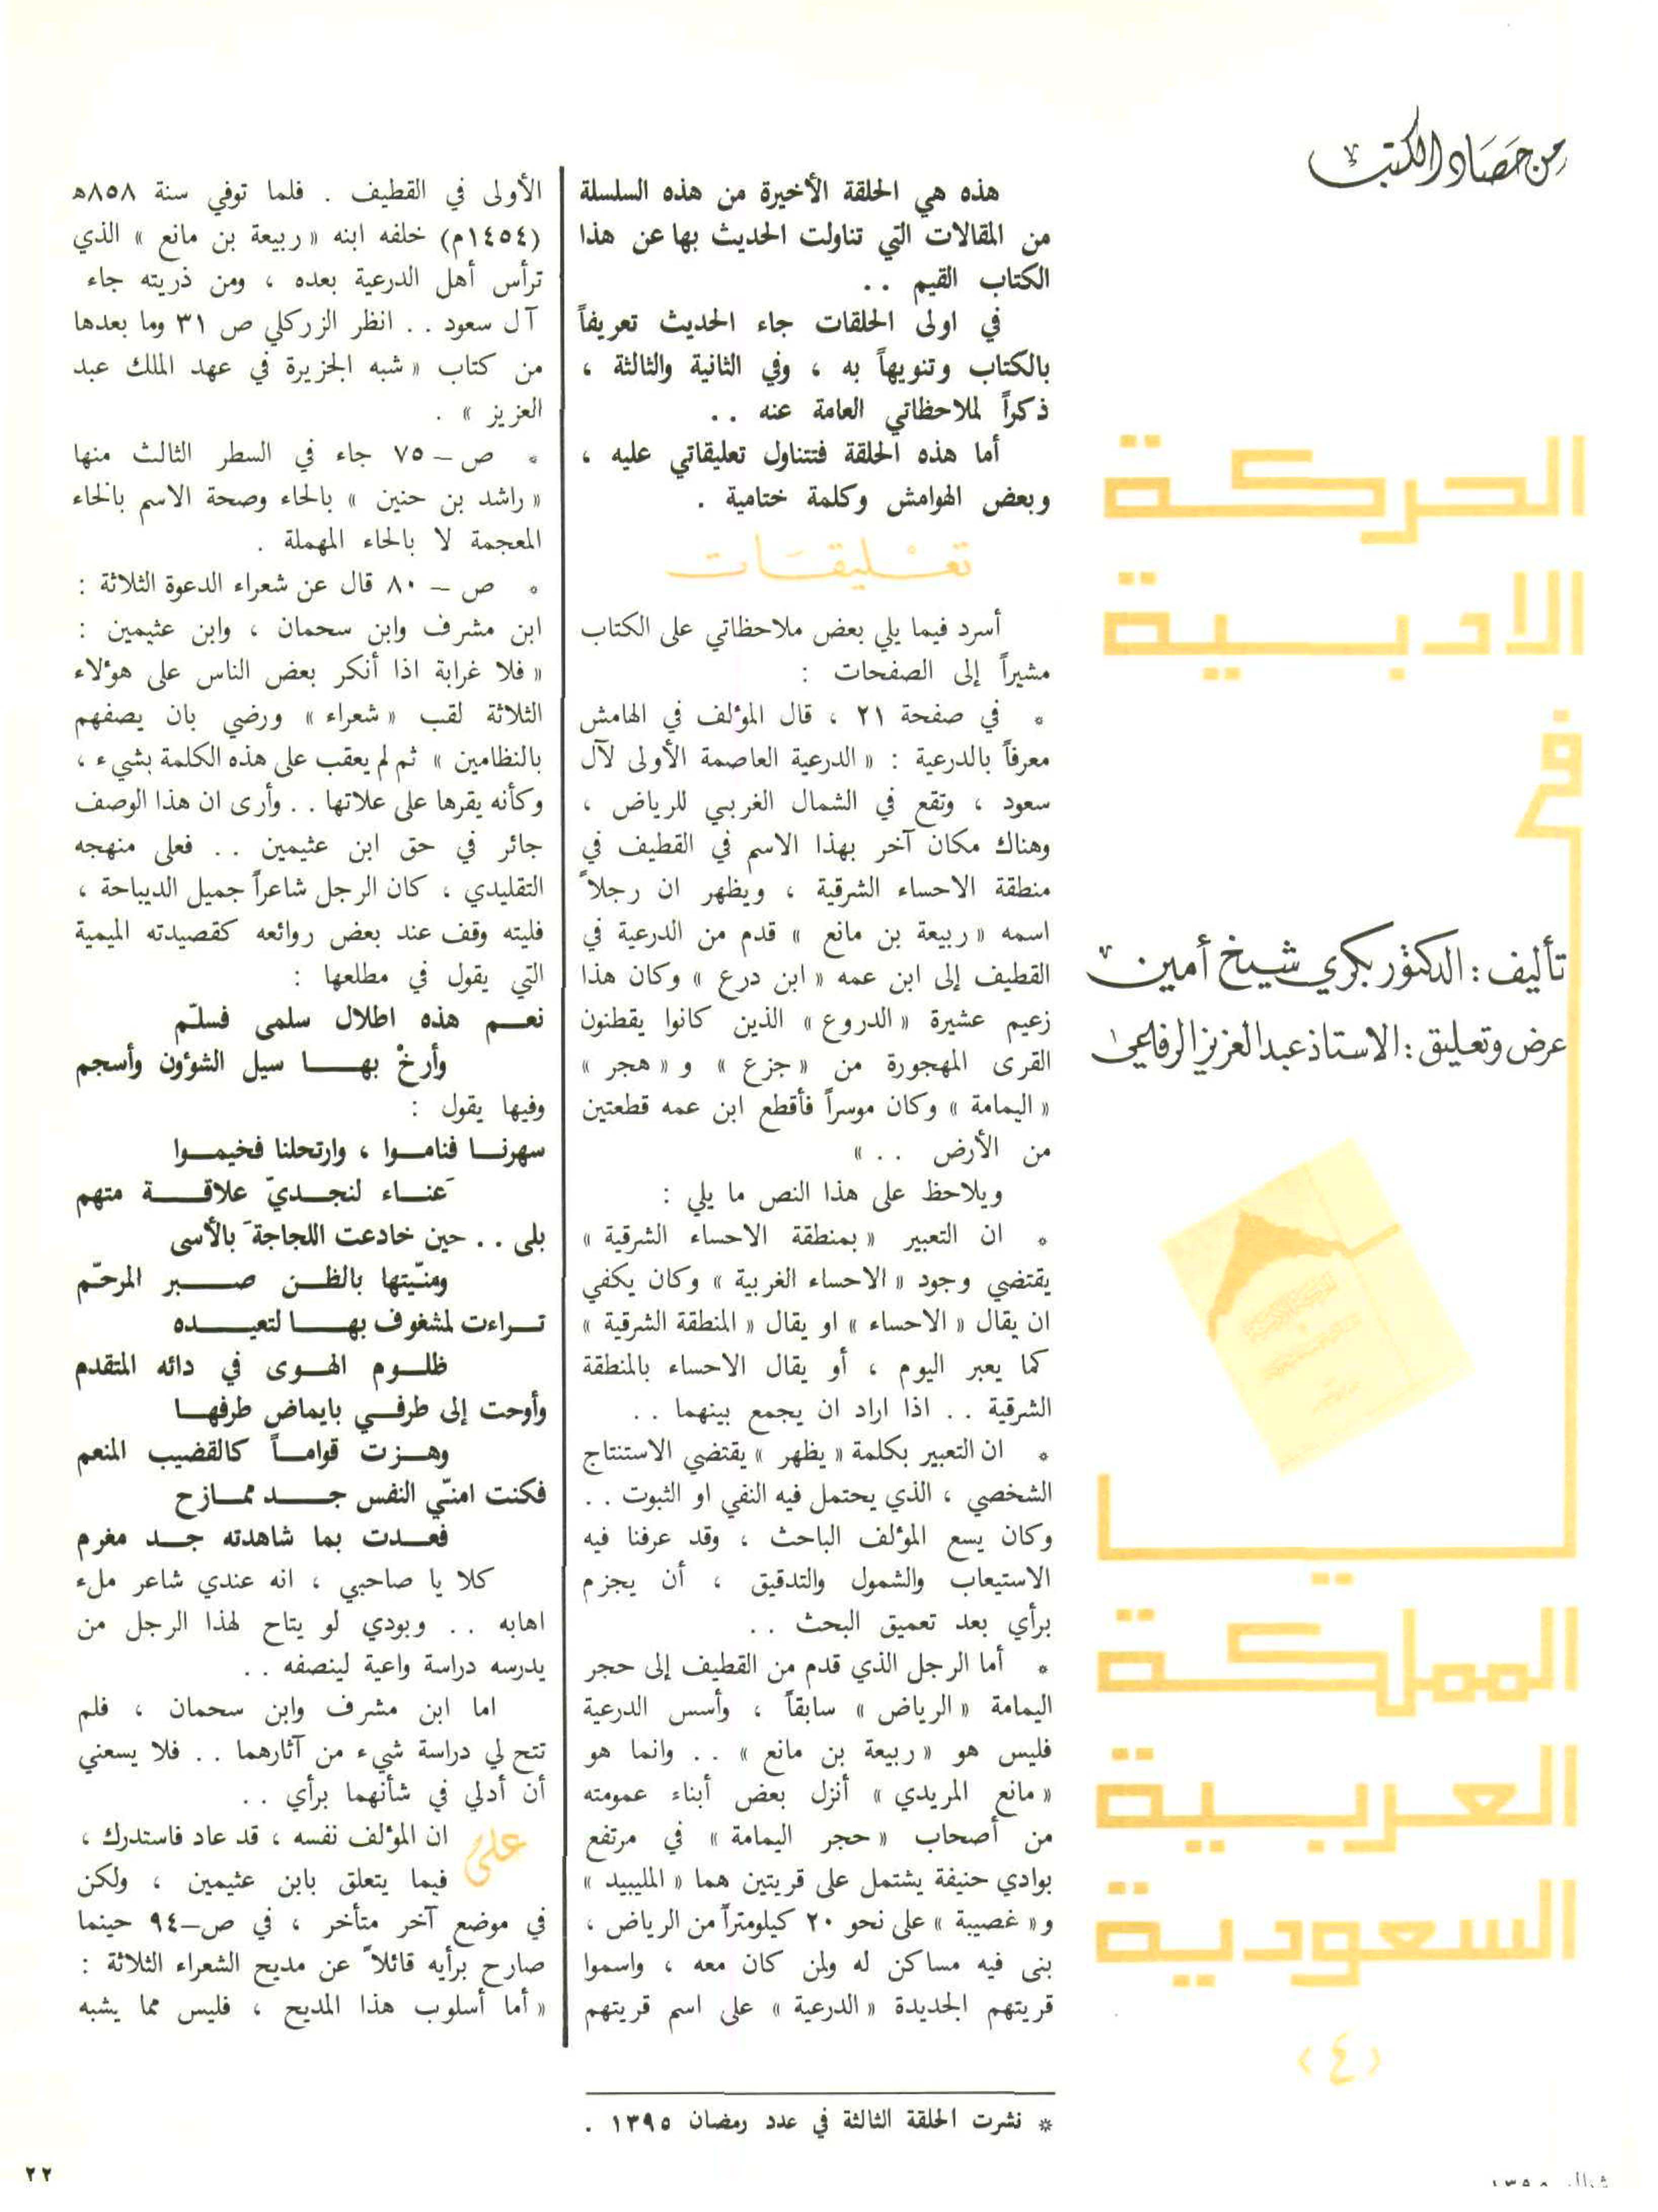 من حصاد الكتب
الحركة
الادبية
في
المملكة
العربية
السعودية
(٤)
تأليف : الدكتور بكري شيخ أمين
عرض وتعليق : الاستاذ عبد العزيز الرفاعي
هذه هي الحلقة الأخيرة من هذه السلسلة
من المقالات التي تناولت الحديث بها عن هذا
الكتاب القيم ..
في اولى الحلقات جاء الحديث تعريفاً
بالكتاب وتنويهاً به ، وفي الثانية والثالثة ،
ذكراً لملاحظاتي العامة عنه ..
أما هذه الحلقة فتتناول تعليقاتي عليه ،
وبعض الهوامش وكلمة ختامية .
تعْـليقـَات
أسرد فيما يلي بعض ملاحظاتي على الكتاب
مشيراً إلى الصفحات :
* في صفحة ٢١ ، قال المؤلف في الهامش
معرفاً بالدرعية : « الدرعية العاصمة الأولى لآل
سعود ، وتقع في الشمال الغربي للرياض ،
وهناك مكان آخر بهذا الاسم في القطيف في
منطقة الاحساء الشرقية ، ويظهر ان رجلاً
اسمه « ربيعة بن مانع » قدم من الدرعية في
القطيف إلى ابن عمه « ابن درع » وكان هذا
زعيم عشيرة « الدروع » الذين كانوا يقطنون
القرى المهجورة من « جزع » و « هجر »
« اليمامة » وكان موسراً فأقطع ابن عمه قطعتين
من الأرض .. »
ويلاحظ على هذا النص ما يلي :
* ان التعبير « بمنطقة الاحساء الشرقية »
يقتضي وجود « الاحساء الغربية » وكان يكفي
ان يقال « الاحساء » او يقال « المنطقة الشرقية »
كما يعبر اليوم ، أو يقال الاحساء بالمنطقة
الشرقية .. اذا اراد ان يجمع بينهما ..
* ان التعبير بكلمة « يظهر » يقتضي الاستنتاج
الشخصي ، الذي يحتمل فيه النفي او الثبوت ..
وكان يسع المؤلف الباحث ، وقد عرفنا فيه
الاستيعاب والشمول والتدقيق ، أن يجزم
برأي بعد تعميق البحث ..
* أما الرجل الذي قدم من القطيف إلى حجر
اليمامة « الرياض » سابقاً ، وأسس الدرعية
فليس هو « ربيعة بن مانع » .. وانما هو
« مانع المريدي » أنزل بعض أبناء عمومته
من أصحاب « حجر اليمامة » في مرتفع
بوادي حنيفة يشتمل على قريتين هما « المليبيد »
و « غصيبة » على نحو ٢٠ كيلومتراً من الرياض ،
بنى فيه مساكن له ولمن كان معه ، واسموا
قريتهم الجديدة « الدرعية » على اسم قريتهم
* نشرت الحلقة الثالثة في عدد رمضان ١٣٩٥ .
الأولى في القطيف . فلما توفي سنة ٨٥٨ه
(١٤٥٤م) خلفه ابنه « ربيعة بن مانع » الذي
ترأس أهل الدرعية بعده ، ومن ذريته جاء
آل سعود .. انظر الزركلي ص ٣١ وما بعدها
من كتاب « شبه الجزيرة في عهد الملك عبد
العزيز » .
* ص – ٧٥ جاء في السطر الثالث منها
« راشد بن حنين » بالحاء وصحة الاسم بالخاء
المعجمة لا بالحاء المهملة .
* ص – ٨٠ قال عن شعراء الدعوة الثلاثة :
ابن مشرف وابن سحمان ، وابن عثيمين :
« فلا غرابة اذا أنكر بعض الناس على هؤلاء
الثلاثة لقب « شعراء » ورضي بان يصفهم
بالنظامين » ثم لم يعقب على هذه الكلمة بشيء ،
وكأنه يقرها على علاتها .. وأرى ان هذا الوصف
جائر في حق ابن عثيمين .. فعلى منهجه
التقليدي ، كان الرجل شاعراً جميل الديباجة ،
فليته وقف عند بعض روائعه كقصيدته الميمية
التي يقول في مطلعها :
نعــم هذه اطلال سلمى فسلّم
وأرخْ بهــا سيل الشؤون وأسجم
وفيها يقول :
سهرنــا فنامــوا ، وارتحلنا فخيمــوا
عَنــاء لنجــديّ علاقــة متهم
بلى .. حين خادعت اللجاجةَ بالأسى
ومنّيتها بالظــن صــبر المرحّم
تــراءت لمشغوف بهــا لتعيــده
ظلــوم الهــوى في دائه المتقدم
وأوحت إلى طرفــي بايماض طرفهــا
وهــزت قوامــاً كالقضيب المنعم
فكنت امنّي النفس جــد ممــازح
فعــدت بما شاهدته جــد مغرم
كلا يا صاحبي ، انه عندي شاعر ملء
اهابه .. وبودي لو يتاح لهذا الرجل من
يدرسه دراسة واعية لينصفه ..
اما ابن مشرف وابن سحمان ، فلم
تتح لي دراسة شيء من آثارهما .. فلا يسعني
أن أدلي في شأنهما برأي ..
على ان المؤلف نفسه ، قد عاد فاستدرك ،
فيما يتعلق بابن عثيمين ، ولكن
في موضع آخر متأخر ، في ص–٩٤ حينما
صارح برأيه قائلاً عن مديح الشعراء الثلاثة :
« أما أسلوب هذا المديح ، فليس مما يشبه
٢٢